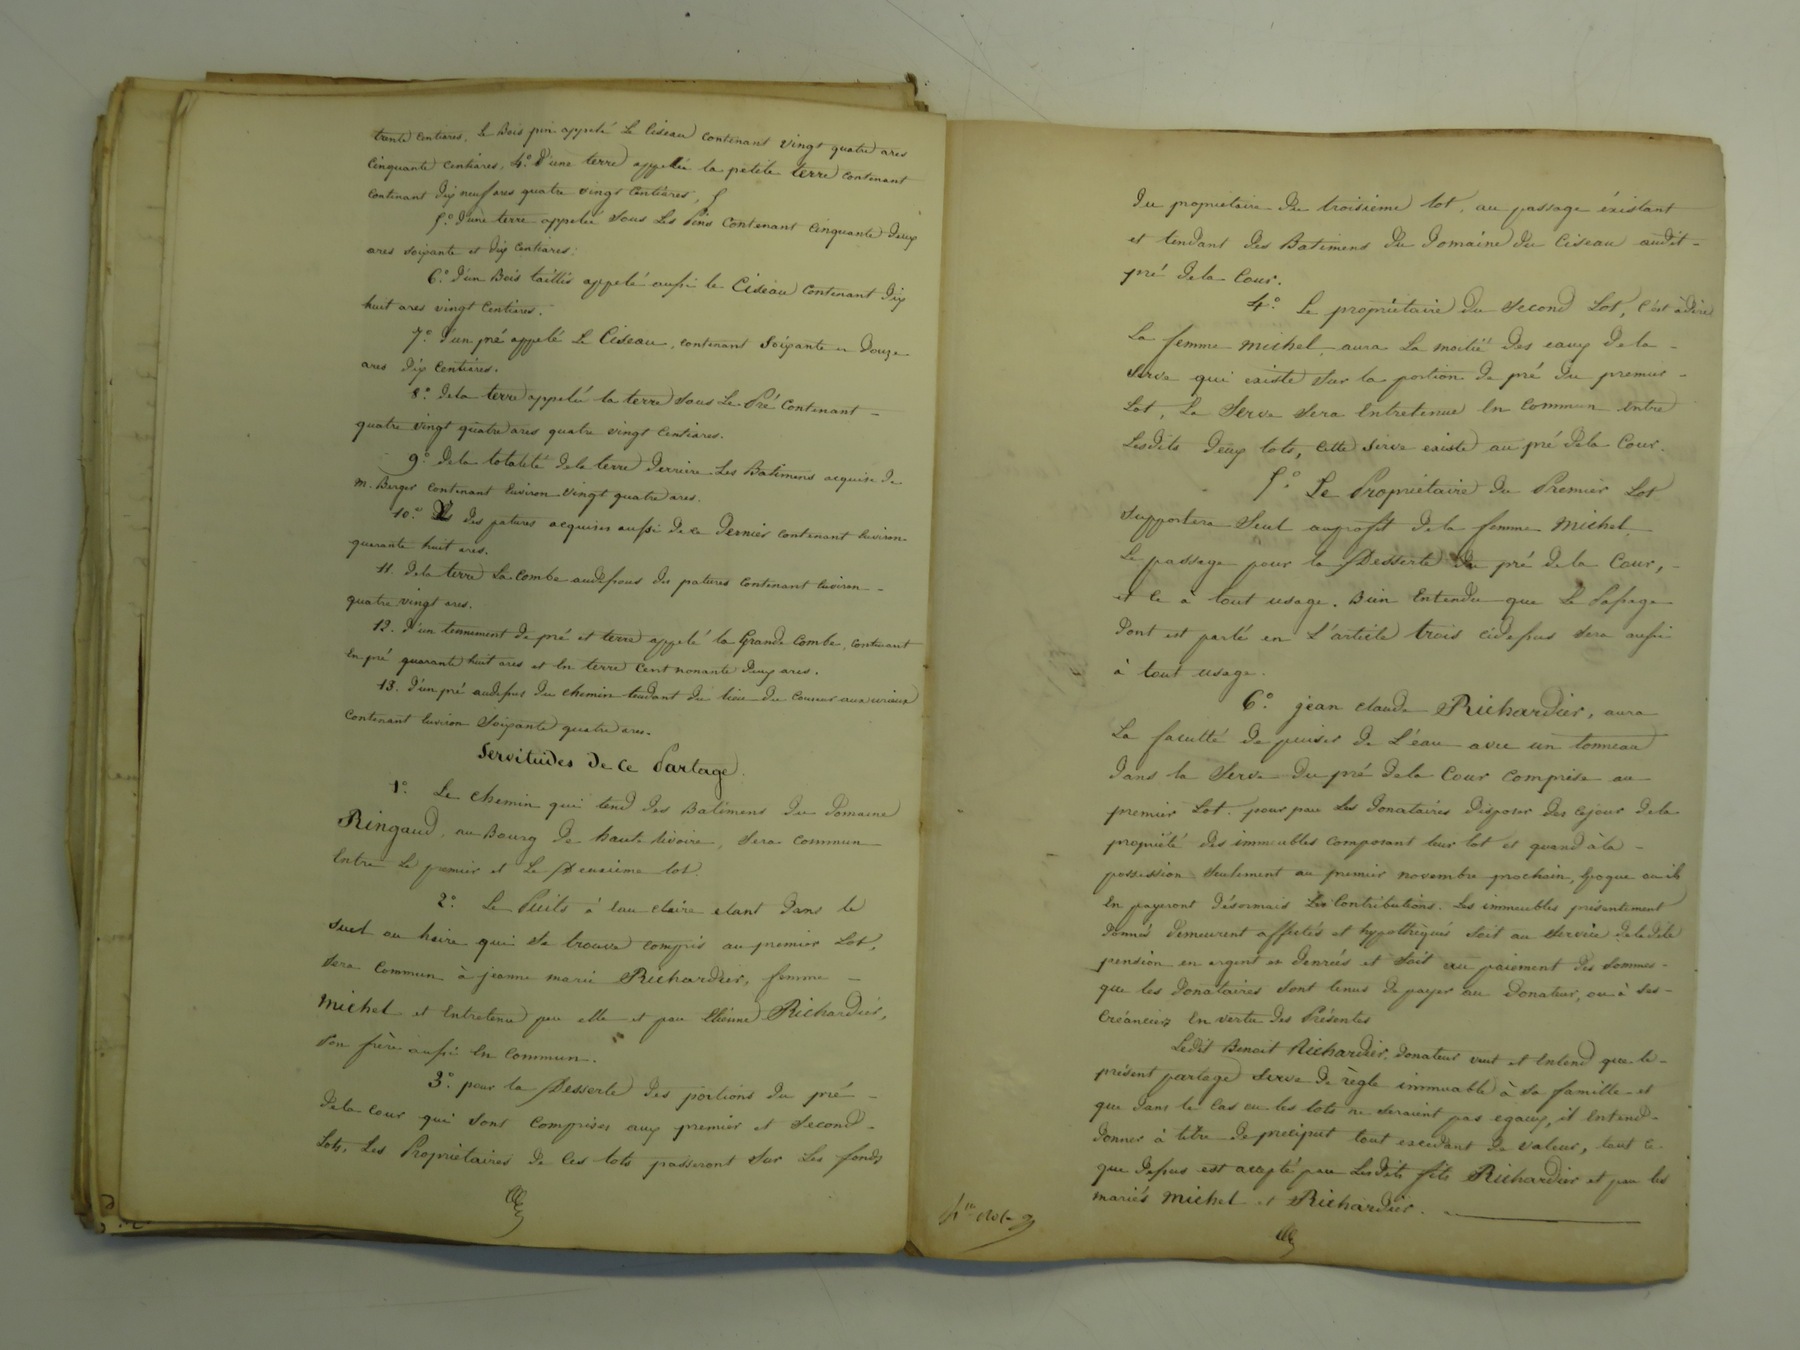 trente centiares, Le Bois pin appelé Le Ciseau contenant vingt quatre ares
Cinquante Centiares, 4.° D'une terre appellée la petite terre contenant
contenant Dix neuf ares quatre vingt Centiares,
5.° D'une terre appelée Sous Les Pins Contenant Cinquante Deux
ares soixante et Dix Centiares:
6.° D'un Bois taillis appelé aussi le Ciseau Contenant Dix
huit ares vingt Centiares.
7.° D'un pré appelé Le Ciseau, contenant Soixante et Douze
ares Dix Centiares.
8.° De la terre appelée la terre Sous Le Pré Contenant -
quatre vingt quatre ares quatre vingt Centiares.
9.° De la totalité de la terre Derriere Les Batimens acquise de
M. Berger Contenant Environ vingt quatre ares.
10.° des patures acquises aussi de ce Dernier contenant Environ
quarante huit ares.
11. De la terre La Combe audessous des patures contenant Environ -
quatre vingt ares.
12. D'un tennement de pré et terre appelé la Grande Combe, contenant
En pré quarante huit ares et En terre Cent nonante Deux ares.
13. D'un pré audessus du chemin tendant du lieu du
Contenant Environ Soixante quatre ares.
Servitudes De Ce Partage.
1.° Le Chemin qui tend Des Batimens Du Domaine
Ringaud, au Bourg De haute rivoire, Sera Commun
Entre Le premier et Le Deuxieme lot.
2.° Le Puits à Eau Claire étant Dans le
Suel ou haire qui Se trouve compris au premier Lot,
Sera Commun à jeanne marie Richardier, femme -
Michel et Entretenu par elle et par Etienne Richardier,
Son frère aussi En Commun.
3.° pour la Desserte Des portions Du pré -
De la Cour qui Sont Comprises aux premier et Second -
Lots, Les Propriétaires De Ces lots passeront Sur Les fonds
Du propriétaire Du troisieme lot, au passage éxistant
et tendant Des Batimens Du Domaine Du Ciseau audit -
pré De la Cour.
4.° Le propriétaire du Second Lot, C'est àdire
La femme Michel, aura La moitié Des eaux De la -
Serve qui existe Sur la portion De pré Du premier -
Lot, La Serve Sera Entretenue En Commun Entre
Lesdits Deux lots, Cette Serve existe au pré De la Cour.
5.° Le Propriétaire Du Premier Lot
Supportera Seul au profit De la femme Michel,
Le passage pour la Desserte Du pré De la Cour, -
et Ce à tout usage. Bien Entendu que Le Passage
Dont est parlé en L'article trois cidessus Sera aussi
à tout usage.
6.° jean claude Richardier, aura
La faculté De puiser De L'eau avec un tonneau
Dans la Serve Du pré De la Cour Comprise au
premier Lot. pour par Les Donataires Disposer Dès Cejour De la
propriété Des immeubles Composant leur lot et quand à la -
possession Seulement au premier novembre prochain, Epoque ou ils
En payeront Désormais Les Contributions. Les immeubles présentement
Donnés Demeurent affectés et hypothéqués Soit au Service De ladite
pension en argent et Denrées et Soit au paiement Des Sommes -
que les Donataires Sont tenus De payer au Donateur, ou à Ses -
Créanciers En vertu Des Présentes
Ledit Benoit Richardier, Donateur veut et Entend que le -
présent partage Serve De règle immuable à Sa famille et
que Dans le Cas ou les lots ne Seraient pas egaux, il Entend -
Donner à titre De préciput tout excedant De Valeur, tout Ce
que Dessus est accepté par Lesdits fils Richardier et par les
mariés Michel et Richardier.